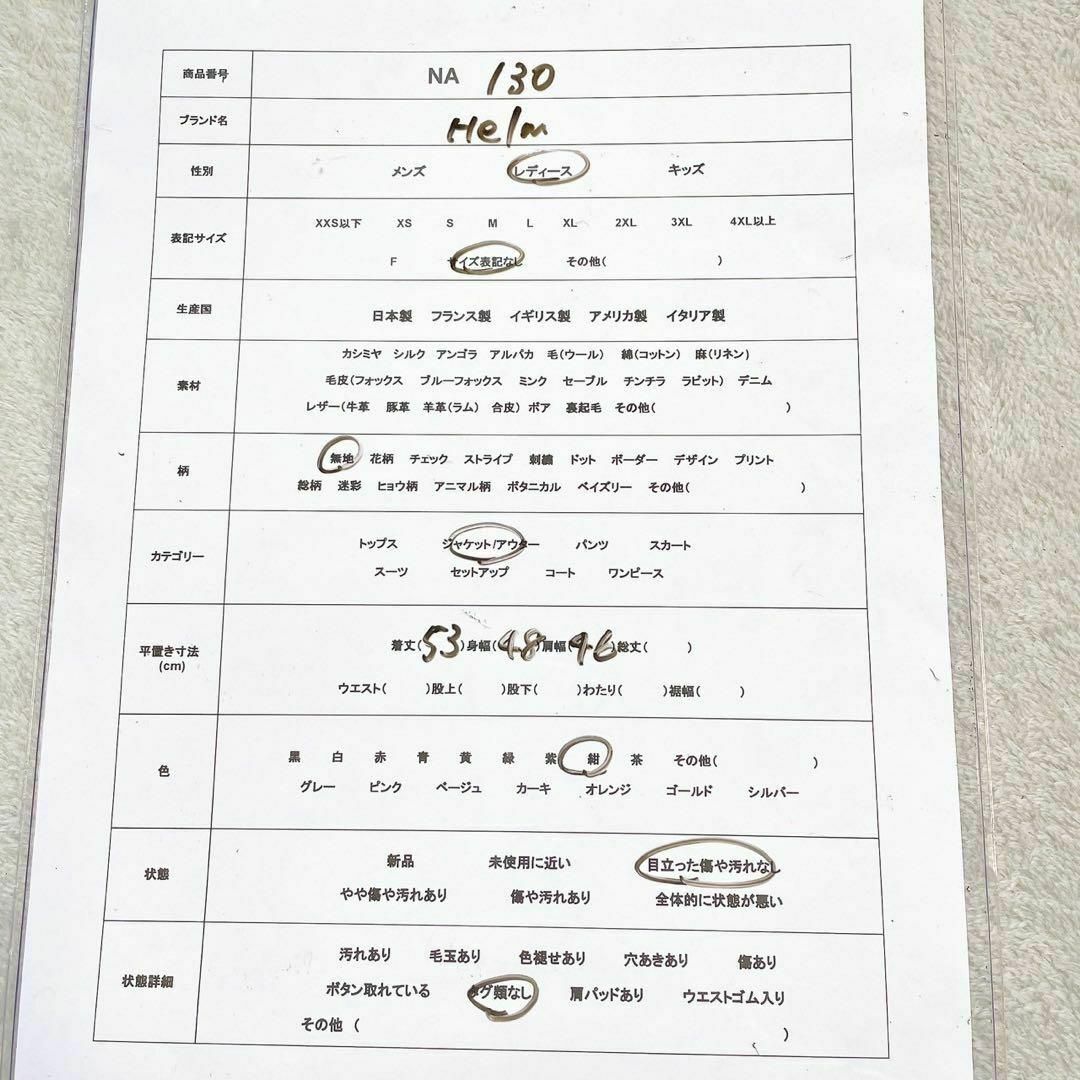 商品番号 NA 130
ブランド名 Helm
性別 メンズ レディース キッズ
XXS以下 XS S M L XL 2XL 3XL 4XL以上
表記サイズ
F サイズ表記なし その他( )
生産国 日本製 フランス製 イギリス製 アメリカ製 イタリア製
カシミヤ シルク アンゴラ アルパカ 毛(ウール) 綿(コットン) 麻(リネン)
素材 毛皮(フォックス ブルーフォックス ミンク セーブル チンチラ ラビット) デニム
レザー(牛革 豚革 羊革(ラム) 合皮) ボア 裏起毛 その他( )
無地 花柄 チェック ストライプ 刺繍 ドット ボーダー デザイン プリント
柄
総柄 迷彩 ヒョウ柄 アニマル柄 ボタニカル ペイズリー その他( )
トップス ジャケット/アウター パンツ スカート
カテゴリー
スーツ セットアップ コート ワンピース
着丈(53)身幅(48)肩幅(46)総丈( )
平置き寸法
(cm)
ウエスト( )股上( )股下( )わたり( )裾幅( )
黒 白 赤 青 黄 緑 紫 紺 茶 その他( )
色
グレー ピンク ベージュ カーキ オレンジ ゴールド シルバー
新品 未使用に近い 目立った傷や汚れなし
状態
やや傷や汚れあり 傷や汚れあり 全体的に状態が悪い
汚れあり 毛玉あり 色褪せあり 穴あきあり 傷あり
状態詳細 ボタン取れている タグ類なし 肩パッドあり ウエストゴム入り
その他 ( )